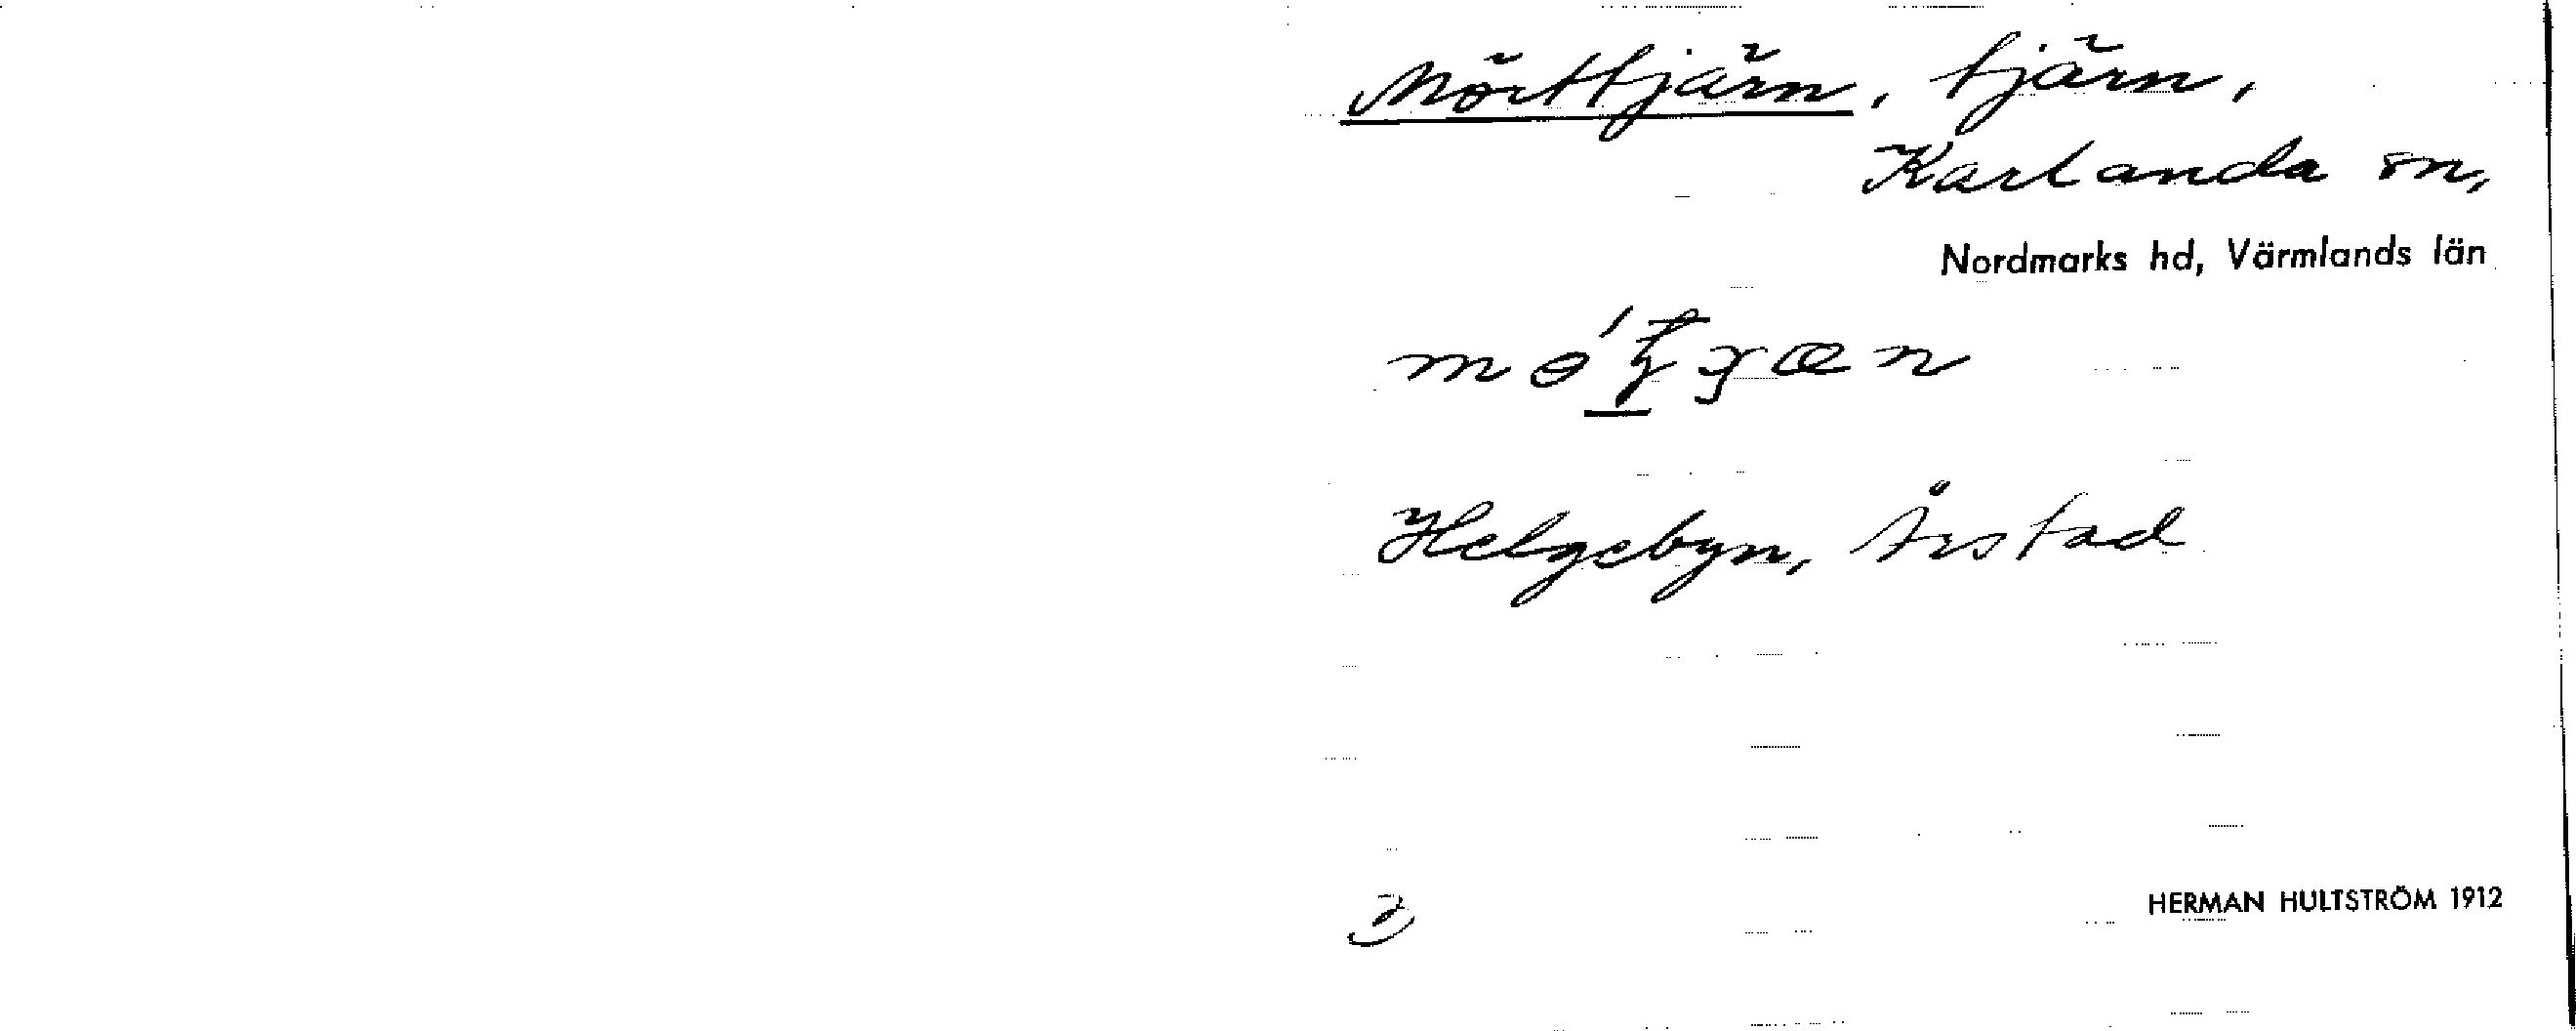 Mörttjärn, tjärn,
Karlanda sn,
Nordmarks hd, Värmlands län
Helgebyn, Årstad
HERMAN HULTSTRÖM 1912